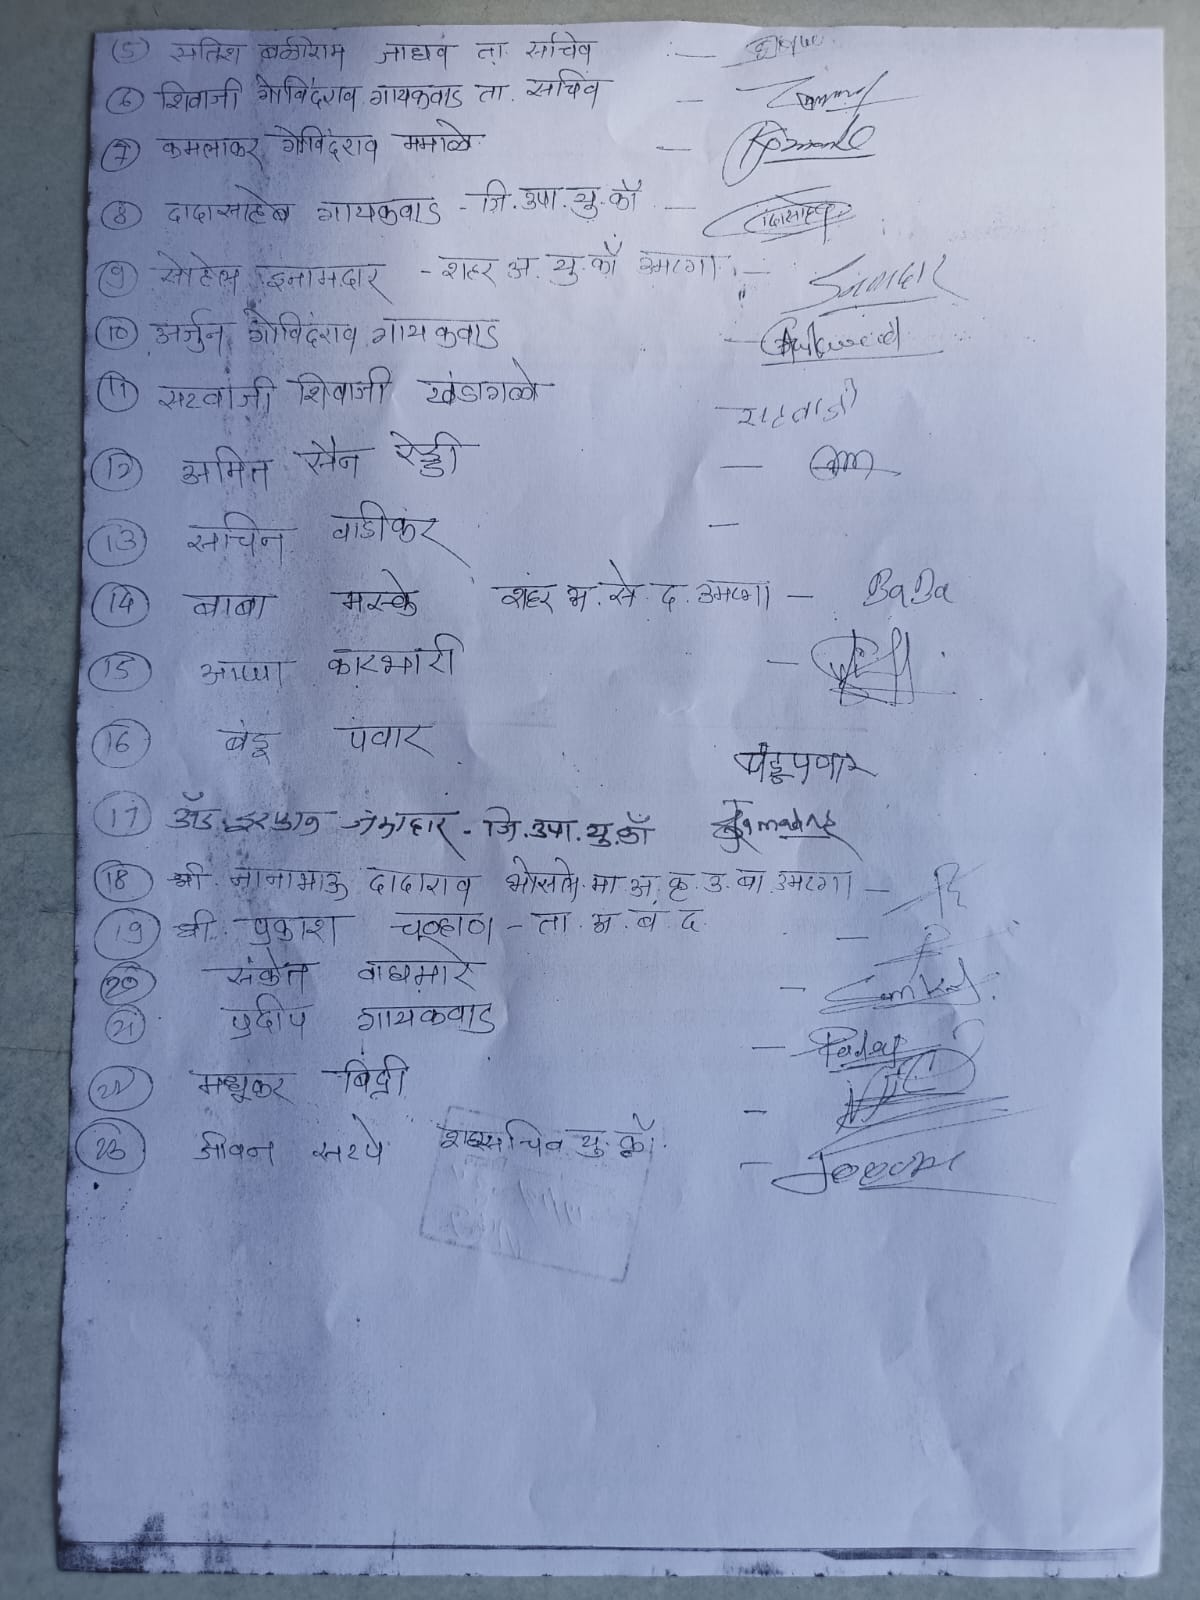 (5) सतिश बळीराम जाधव ता. सचिव :-
(6) शिवाजी गोविंदराव गायकवाड ता. सचिव -
(7) कमलाकर गोविंदराव ममाळे -
(8) दादासाहेब गायकवाड - जि.उपा.यु.काँ - दादासाहेब
(9) सोहेल इनामदार - शहर अ. यु. काँ उमरगा :- इनामदार
(10) अर्जुन गोविंदराव गायकवाड -
(11) सटवाजी शिवाजी खंडागळे सटवाजी
(12) अमित रेड्डी -
(13) सचिन वाडीकर -
(14) बाबा मस्के शहर अ. से. द. उमरगा - BaBa
(15) आप्पा कारभारी -
(16) बंडू पवार बंडू पवार
(17) अॅड. इरफान जमादार - जि.उपा.यु.काँ Jamadar
(18) श्री. नानाभाऊ दादाराव भोसले मा. अ. कृ. उ. बा. उमरगा -
(19) श्री. प्रकाश चव्हाण - ता. अ. ब. द. -
(20) संकेत वाघमारे - Sanket
(21) प्रदीप गायकवाड -
(22) मधूकर बिद्री -
(23) जीवन सरपे शहरसचिव यु. काँ. -